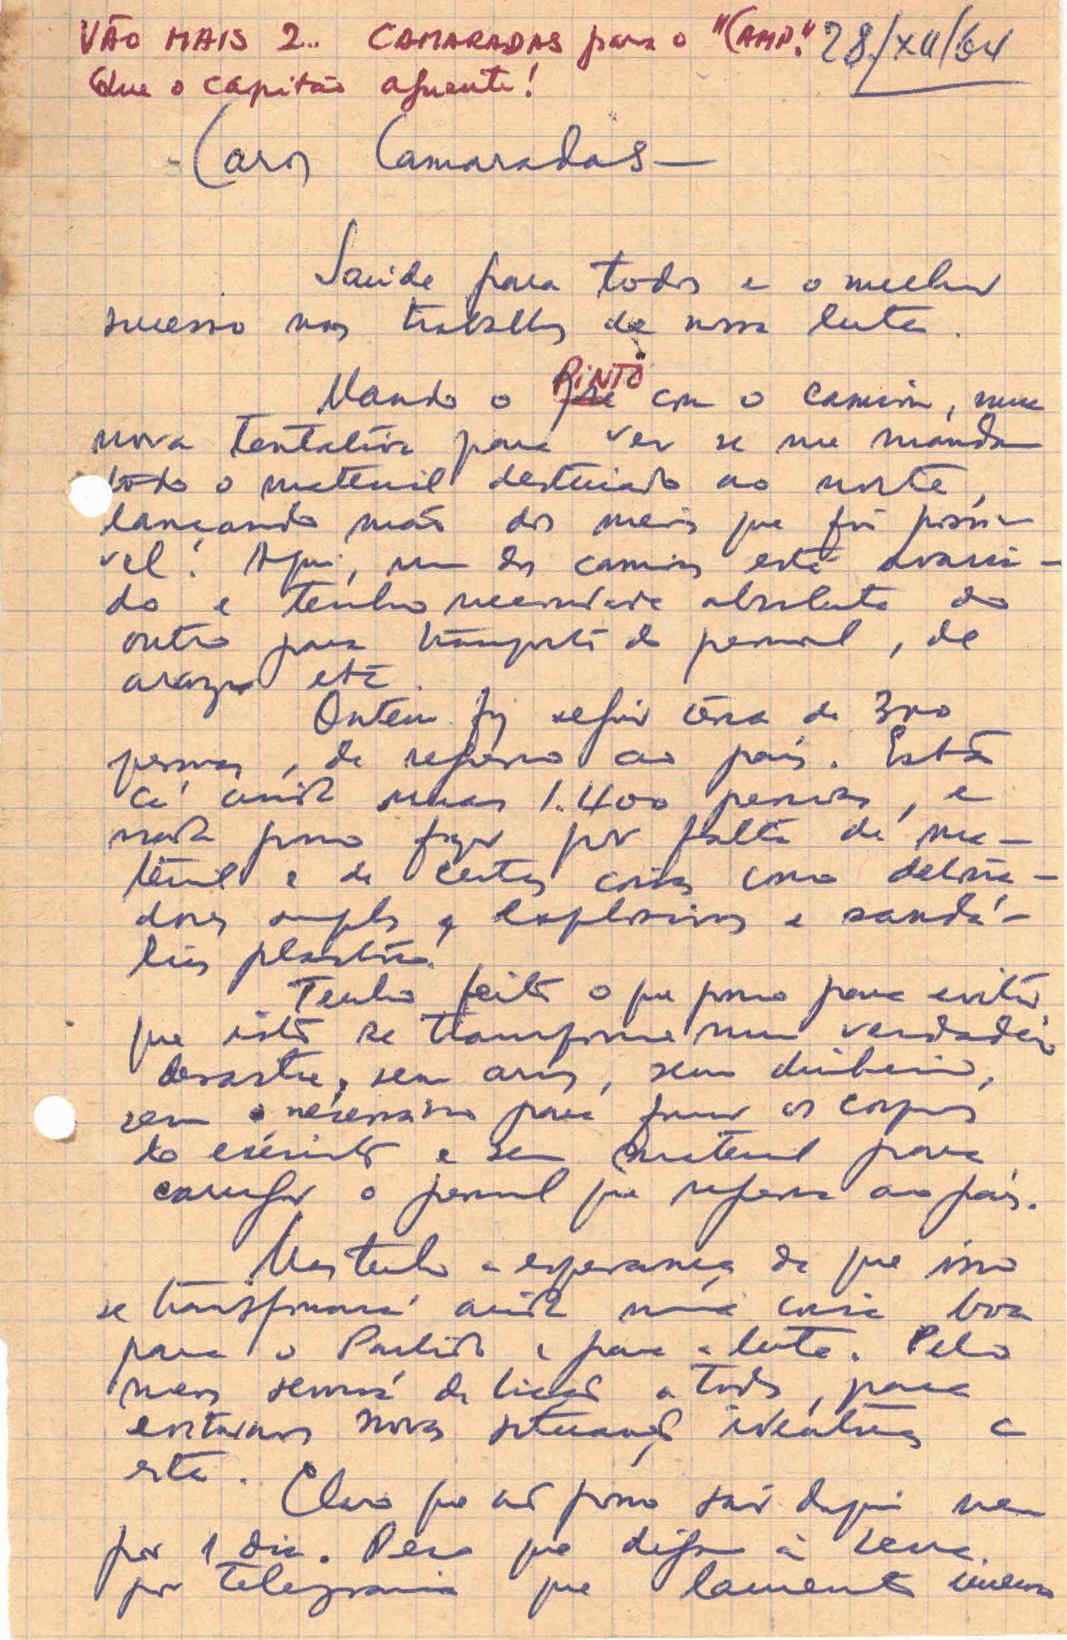 VÃO MAIS 2.. CAMARADAS para o "CAMP." 28/XII/64
Que o capitão aguente!
Caros Camaradas —
Saúde para todos e o melhor
sucesso nos trabalhos da nossa luta.
Mando o PINTO com o camion, numa
nova tentativa para ver se me mandam
todo o material destinado ao norte,
lançando mão dos meios que for possí-
vel! Aqui, um dos camions está avaria-
do e tenho necessidade absoluta do
outro para transporte do pessoal, de
arroz etc.
Ontem fiz seguir cerca de 300
pessoas, de regresso ao país. Estão
cá ainda umas 1.400 pessoas, e
nada posso fazer por falta de ma-
terial e de certas coisas como detona-
dores simples, explosivos e sandá-
lias plástico.
Tenho feito o que posso para evitar
que isto se transforme num verdadeiro
desastre, sem armas, sem dinheiro,
sem o necessário para formar os corpos
do exército e sem material para
carregar o pessoal que regressa ao país.
Mas tenho a esperança de que isso
se transformará ainda numa coisa boa
para o Partido e para a luta. Pelo
menos servirá de lição a todos, para
evitarmos novas situações idênticas a
esta.
Claro que não posso sair daqui nem
por 1 dia. Peço que digam à
por telegrama que lamento imenso